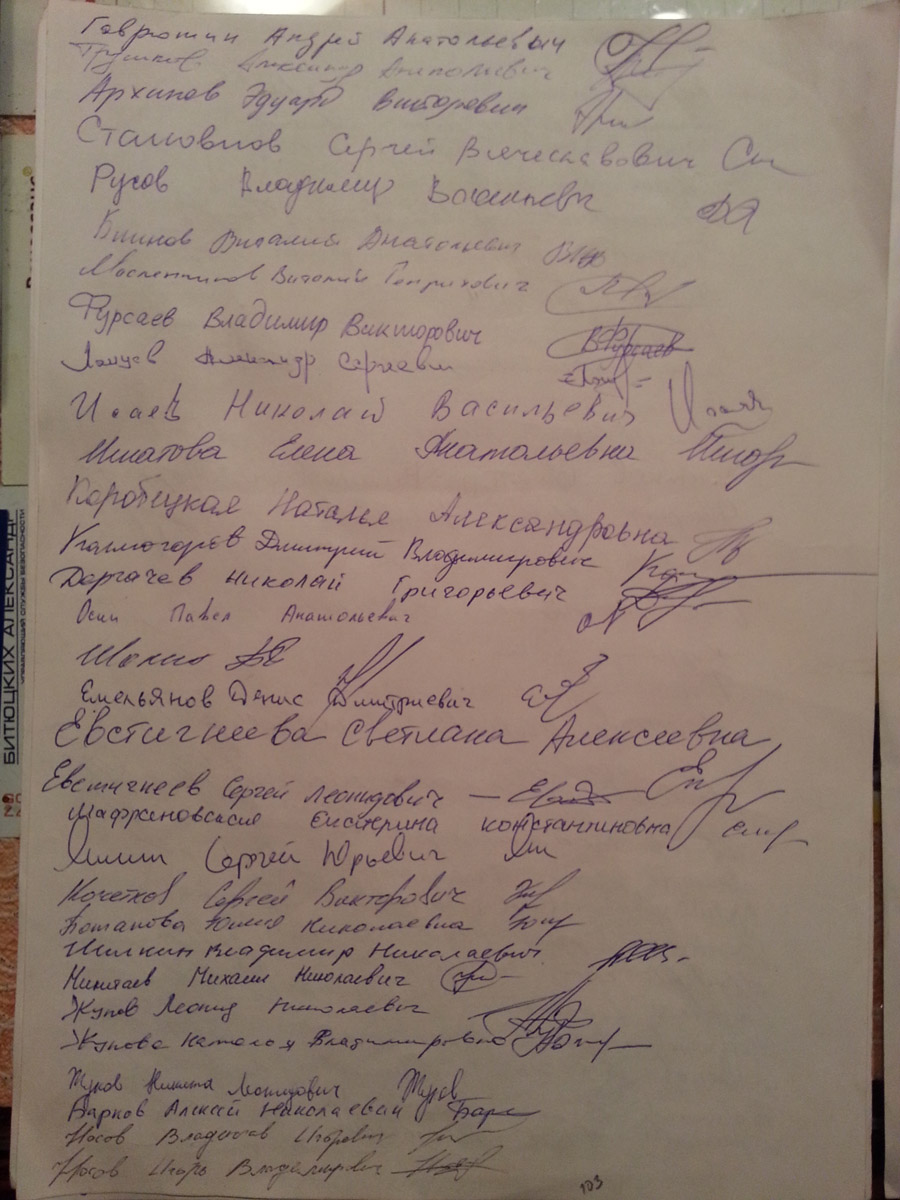 Гаврютин Андрей Анатольевич
Архипов Эдуард Викторович
Сергей Вячеславович
Русов Владимир Васильевич
Виталий Анатольевич
Масленников Виталий Генрихович
Фурсаев Владимир Викторович
В Фурсаев
Александр Сергеевич
Исаев Николай Васильевич
Игнатова Елена Анатольевна
Коробецкая Наталья Александровна
Колмогоров Дмитрий Владимирович
Дергачев Николай Григорьевич
Осин Павел Анатольевич
Емельянов Денис Дмитриевич
Евстигнеева Светлана Алексеевна
Евстигнеев Сергей Леонидович
Шафрановская Екатерина Константиновна
Сергей Юрьевич
Кочетков Сергей Викторович
Потапова Юлия Николаевна
Шилкин Владимир Николаевич
Михаил Николаевич
Жуков Леонид Николаевич
Жукова Наталья Владимировна
Жуков Никита Леонидович Жуков
Барков Алексей Николаевич
Носов Владислав Игоревич
Носов Игорь Владимирович
103
БИТЮЦКИХ АЛЕКСАНД
УПРАВЛЯЮЩИЙ СЛУЖБЫ БЕЗОПАСНОСТИ